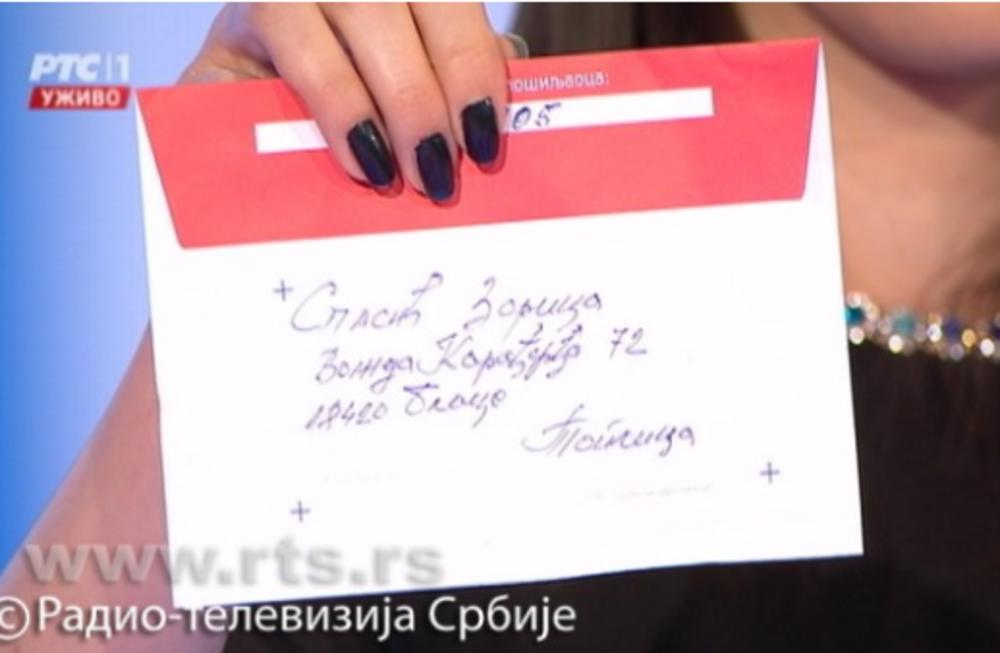 РТС 1
УЖИВО
ошиљаоца:
05
Спасић Зорица
Вожда Карађорђа 72
18420 Блаце
www.rts.rs
©Радио-телевизија Србије